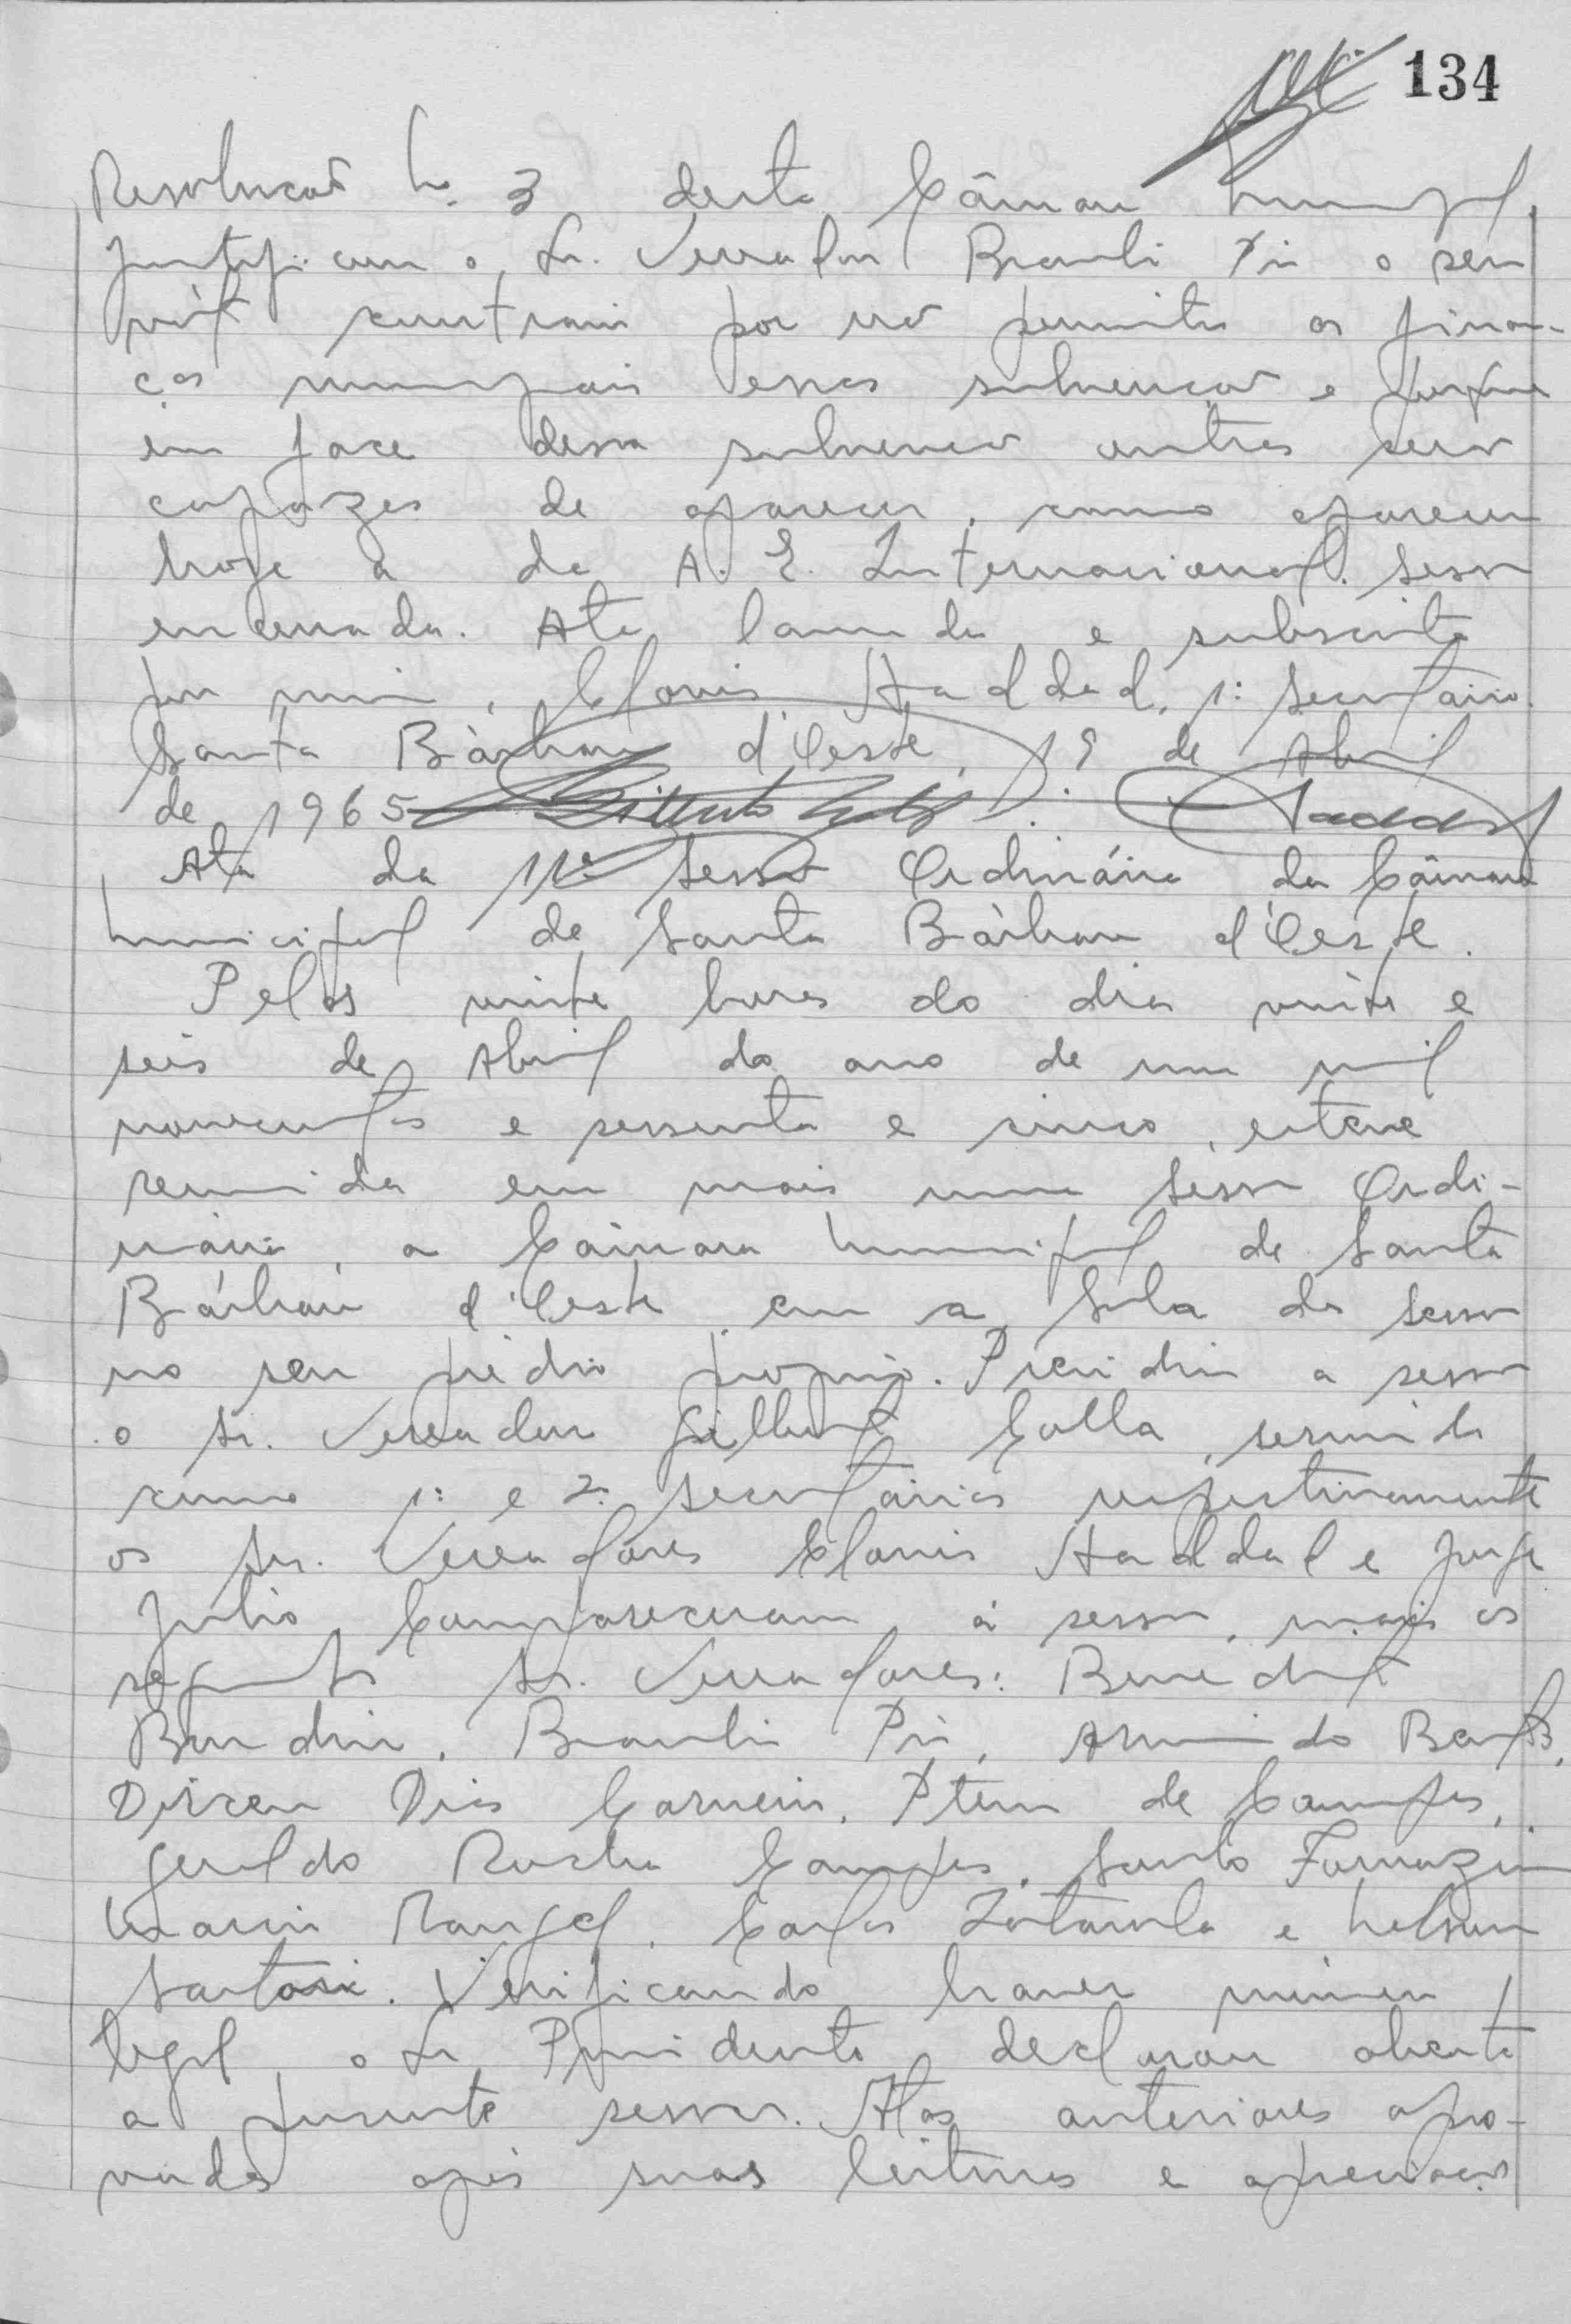 134
Resolução No. 3 desta Câmara Municipal,
justificou o Sr. Vereador Braulio Pio o seu
vóto contrario por não permitir as finan-
ças municipais essas subvenção e porque
em face dessa subvenção outras serão
capazes de aparecer, como apareceu
hoje a da A. E. Internacional. Sessão
encerrada. Ata lavrada e subscrita
por mim, Clovis Haddad, 1º Secretário.
Santa Bàrbara d'Oeste, 19 de Abril
de 1965
Ata da 11ª Sessão Ordinária da Câmara
Municipal de Santa Bàrbara d'Oeste.
Pelas vinte horas do dia vinte e
seis de Abril do ano de um mil
novecentos e sessenta e cinco, esteve
reunida em mais uma Sessão Ordi-
nária, a Câmara Municipal de Santa
Bárbara d'Oeste, em a Sala da Sessão
no seu prédio proprio. Presidiu a sessão
o Sr. Vereador Gilberto Golla, servindo
como 1º e 2º Secretários respectivamente
os Srs. Vereadores Clovis Haddad e Jorge
Julio. Compareceram á sessão, mais os
seguintes Srs. Vereadores: Benedito
Braulio Pio, Armindo
Dirceu Dias Carneiro, de Campos,
Geraldo Rocha Campos, Santo
Mario Rangel, Carlos e Nelson
Sartori. Verificando haver número
legal, o Sr. Presidente declarou aberta
a presente sessão. Atas anteriores apro-
vadas após suas leituras e apreciação